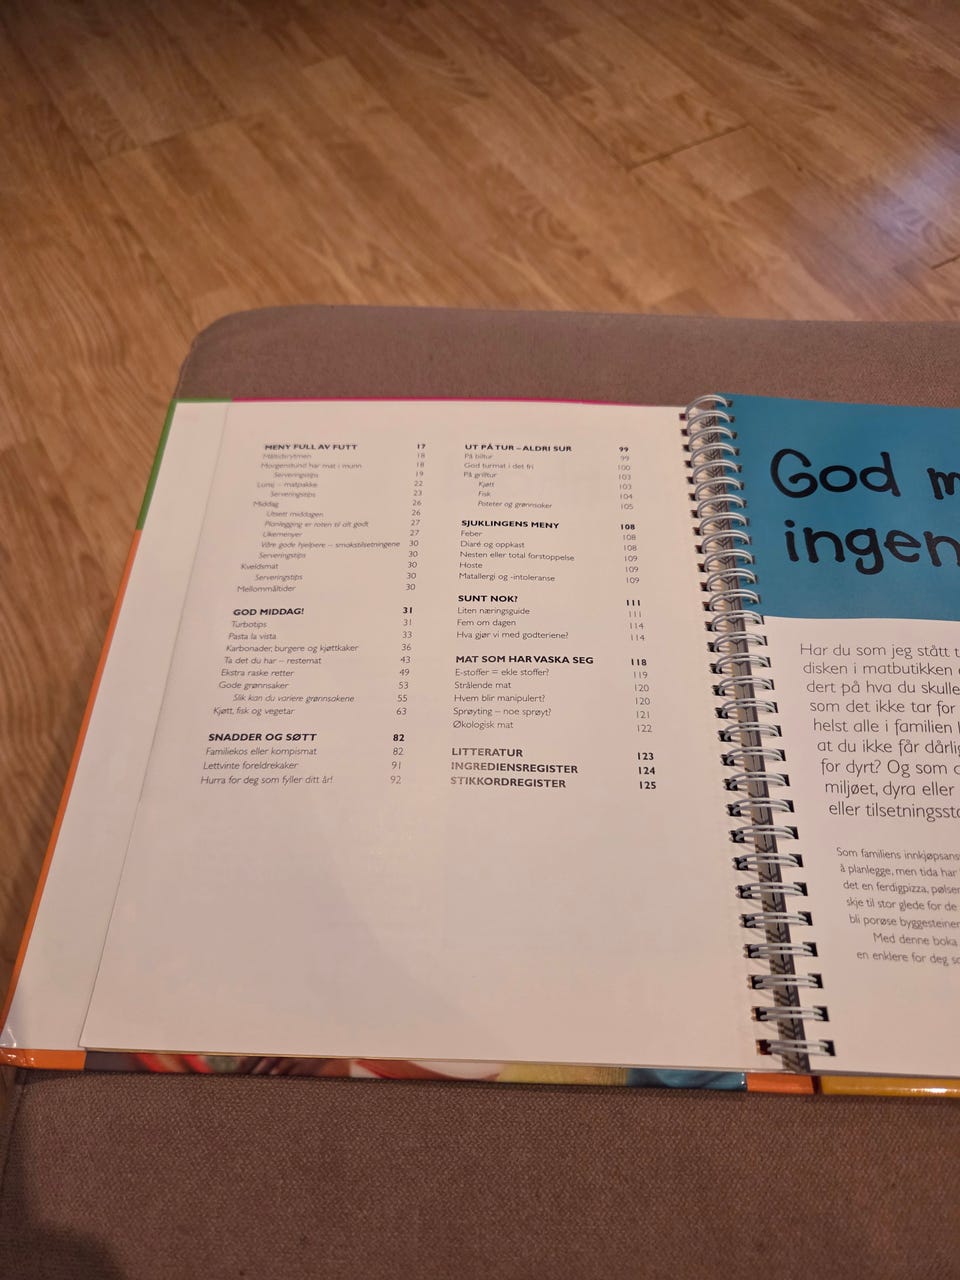 MENY FULL AV FUTT 17
Måltidsrytmen 18
Morgenstund har mat i munn 18
Serveringstips 19
Lunsj – matpakke 22
Serveringstips 23
Middag 26
Utsett middagen 26
Planlegging er roten til alt godt 27
Ukemenyer 27
Våre gode hjelpere – smakstilsetningene 30
Serveringstips 30
Kveldsmat 30
Serveringstips 30
Mellommåltider 30
GOD MIDDAG! 31
Turbotips 31
Pasta la vista 33
Karbonader, burgere og kjøttkaker 36
Ta det du har – restemat 43
Ekstra raske retter 49
Gode grønnsaker 53
Slik kan du variere grønnsakene 55
Kjøtt, fisk og vegetar 63
SNADDER OG SØTT 82
Familiekos eller kompismat 82
Lettvinte foreldrekaker 91
Hurra for deg som fyller ditt år! 92
UT PÅ TUR – ALDRI SUR 99
På biltur 99
God turmat i det fri 100
På grilltur 103
Kjøtt 103
Fisk 104
Poteter og grønnsaker 105
SJUKLINGENS MENY 108
Feber 108
Diaré og oppkast 108
Nesten eller total forstoppelse 109
Hoste 109
Matallergi og -intoleranse 109
SUNT NOK? 111
Liten næringsguide 111
Fem om dagen 114
Hva gjør vi med godteriene? 114
MAT SOM HAR VASKA SEG 118
E-stoffer = ekle stoffer? 119
Strålende mat 120
Hvem blir manipulert? 120
Sprøyting – noe sprøyt? 121
Økologisk mat 122
LITTERATUR 123
INGREDIENSREGISTER 124
STIKKORDREGISTER 125
God m
ingen
Har du som jeg stått t
disken i matbutikken
dert på hva du skulle
som det ikke tar for
helst alle i familien
at du ikke får dårlig
for dyrt? Og som
miljøet, dyra eller
eller tilsetningssto
Som familiens innkjøpsans
å planlegge, men tida har
det en ferdigpizza, pølser
skje til stor glede for de
bli porøse byggesteiner
Med denne boka
en enklere for deg so